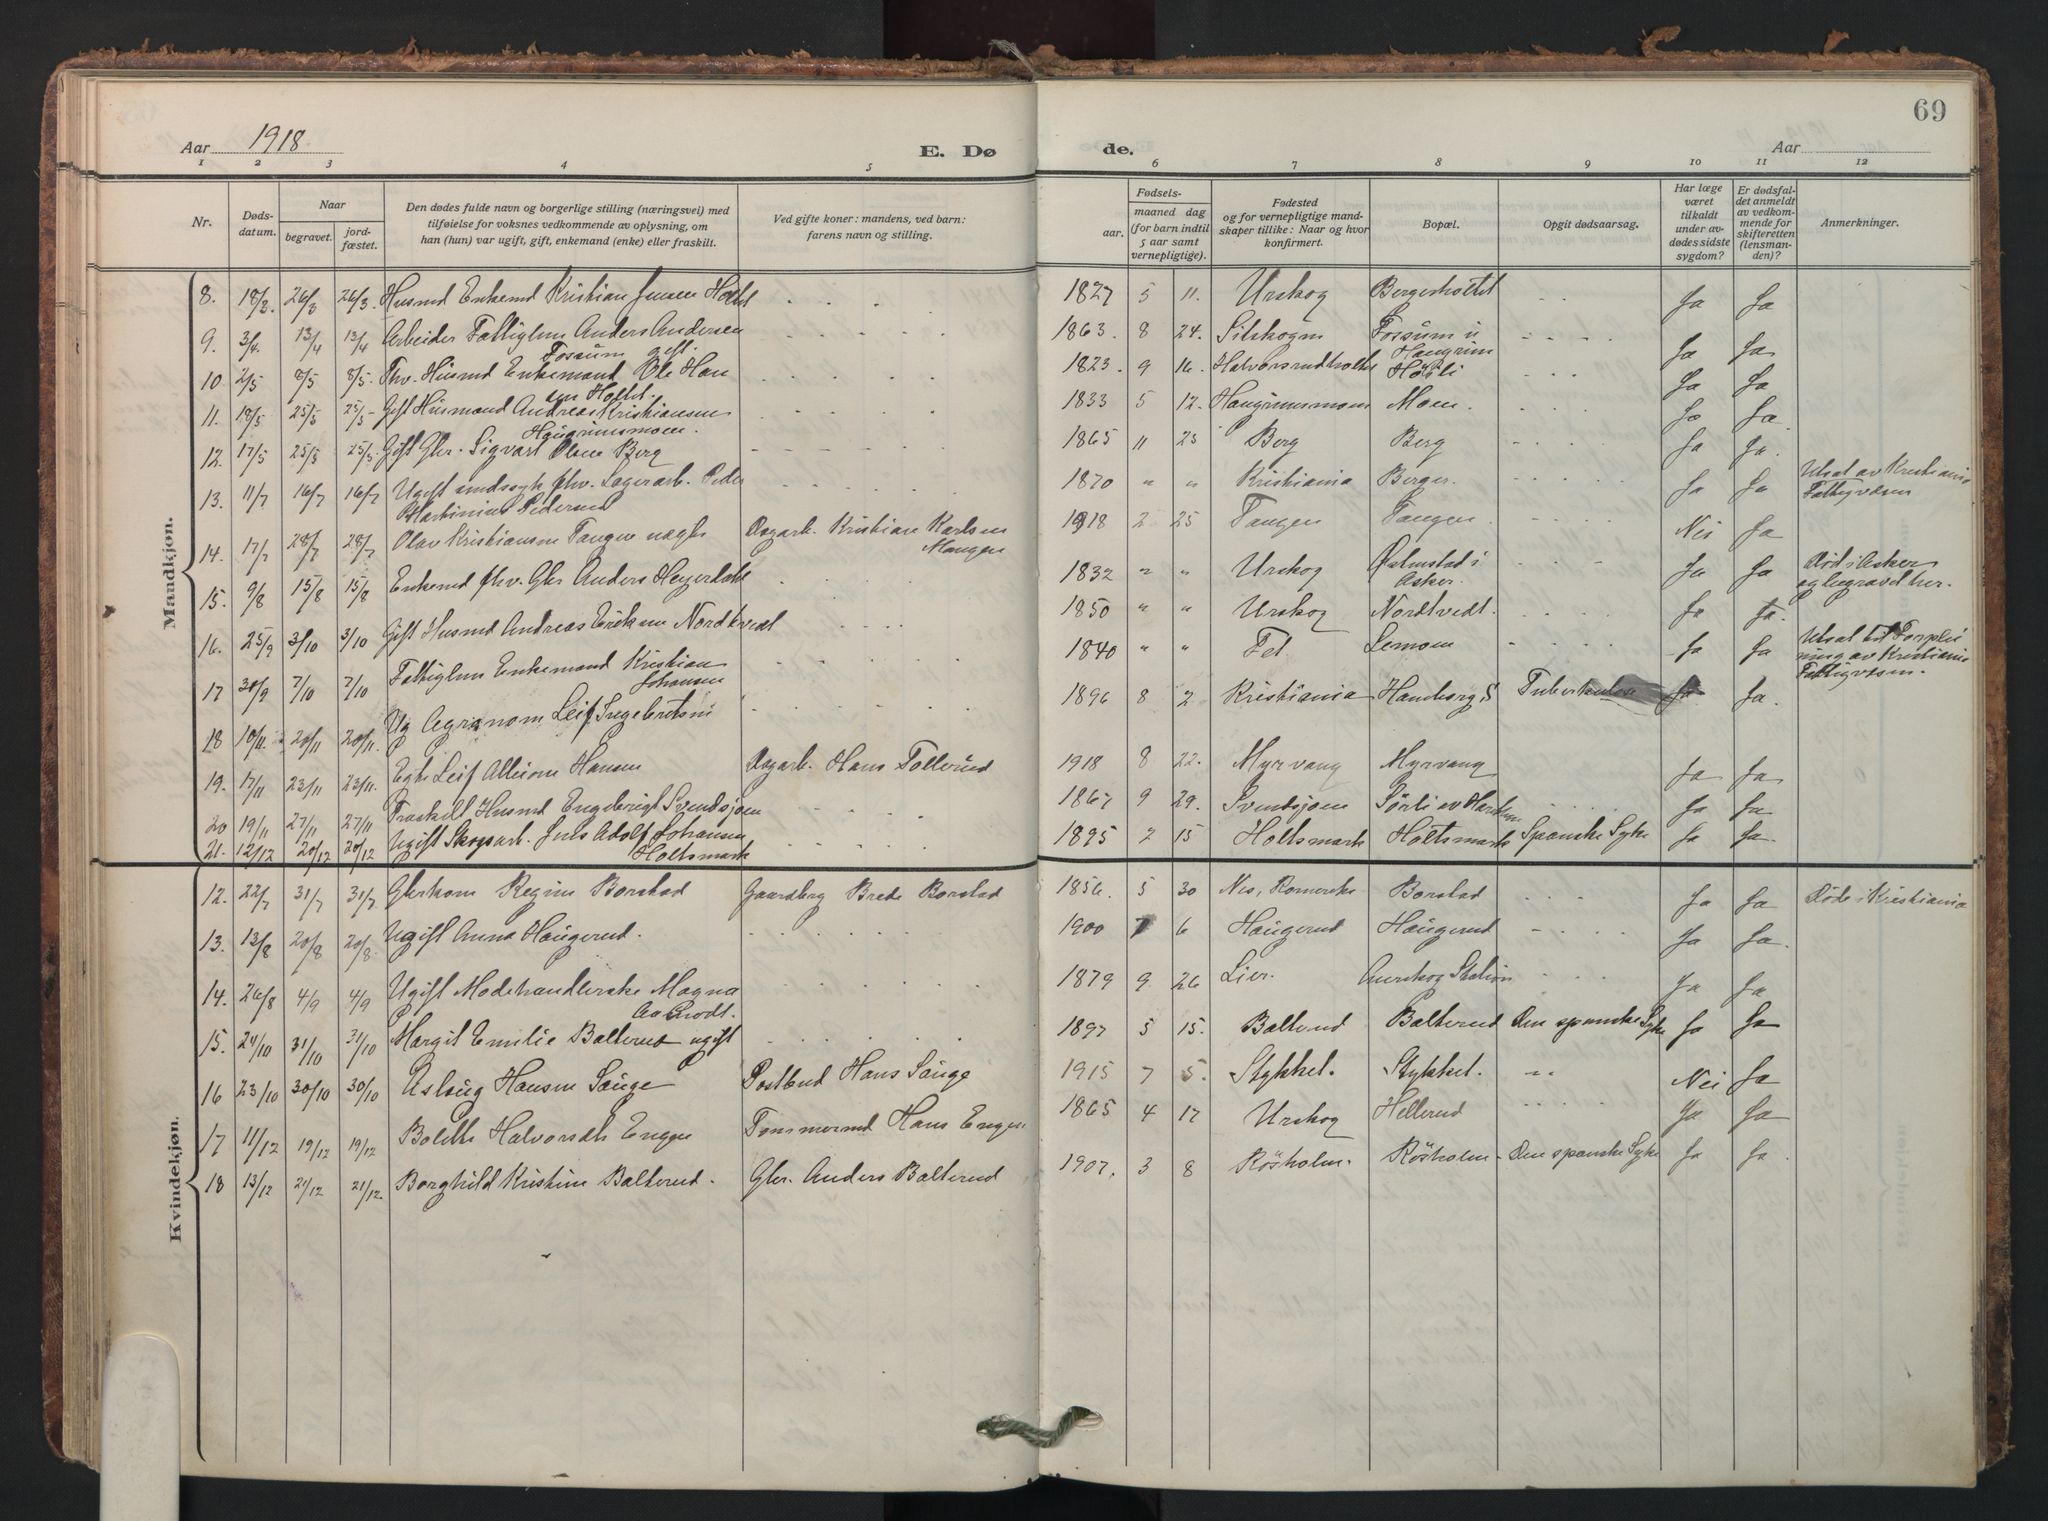 69
Aar 1918
E. Dø
de.
Aar
1 2 3 4 5 6 7 8 9 10 11 12
Nr.
Døds-
datum.
Naar
begravet.
jord-
fæstet.
Den dødes fulde navn og borgerlige stilling (næringsvei) med
tilføielse for voksnes vedkommende av oplysning, om
han (hun) var ugift, gift, enkemand (enke) eller fraskilt.
Ved gifte koner: mandens, ved barn:
farens navn og stilling.
Fødsels-
aar.
maaned dag
(for barn indtil
5 aar samt
vernepligtige).
Fødested
og for vernepligtige mand-
skaper tillike: Naar og hvor
konfirmert.
Bopæl.
Opgit dødsaarsag.
Har læge
været
tilkaldt
under av-
dødes sidste
sygdom?
Er dødsfal-
det anmeldt
av vedkom-
mende for
skifteretten
(lensman-
den)?
Anmerkninger.
Mandkjøn.
8. 18/3. 26/3 26/3 Husmd Enkemd Kristian Jensen Holtet 1827 5 11. Urskog Bergerholtet Ja Ja
9. 3/4. 13/4 13/4 Arbeider Fattiglem Anders Andersen
Fossum gift. 1863. 8 24. Sitskogen Fossum u
Haugrim Ja Ja
10 2/5 8/5 8/5. Fhv. Husmd Enkemand Ole Han
sen Holtet. 1823. 9 16. Halvorsrudholtet Ja Ja
11. 18/5 25/5 25/5 Gift Husmand Andreas Kristiansen
Haugrimsmoen. 1833 5 12. Haugrimsmoen Moen. Ja Ja
12. 17/5 25/5 25/5 Gift Gbr. Sigvart Olsen Berg 1865 11 25 Berg Berg Ja Ja.
13. 11/7 16/7 16/7 Ugift sindssyk fhv. Lagerarb. Peder
Martinius Pedersen 1870 " " Kristiania Berger. Ja Ja Utsat av Kristiania
Fattigvæsen
14. 17/7 28/7 28/7 Olav Kristiansen Tangen uægte Dagarb. Kristian Karlsen
Mangen 1918 2 25 Tangen Tangen. Nei Ja
15. 9/8 15/8 15/8 Enkemd fhv. Gbr Anders Heyerdahl 1832 " " Urskog Østenstad i
Asker. Ja Ja Død i Asker
og begravet her.
16. 25/9 3/10 3/10 Gift Husmd Andreas Eriksen Nordtvedt 1850 " " Urskog Nordtvedt. Ja Ja.
17 30/9 7/10 7/10 Fattiglem Enkemand Kristian
Johansen 1840 " " Fet. Lemoen Ja Ja Utsat til Forplei
ning av Kristiania
Fattigvæsen.
18 10/11. 20/11 20/11. Ug Agronom Leif Ingebretsen 1896 8 2 Kristiania Hamborg Tuberkulose Ja Ja.
19. 17/11 23/11 23/11. Egte Leif Hansen Dagarb. Hans Tollerud 1918 8 22. Myrvang Myrvang Ja Ja
20 19/11 27/11 27/11 Fraskilt Husmd Engebrigt Svendsjøen 1867 9 29. Svendsjøen Sørli av Ja Ja
21. 12/12 20/12 20/12 Ugift Skogsarb. Jens Adolf Johansen
Holtsmark 1895 2 15 Holtsmark Holtsmark Spanske Syke Ja Ja
Kvindekjøn.
12. 22/7 31/7 31/7 Gbrkone Regine Borstad Gaardbrg Brede Borstad 1856. 5 30 Nes, Romerike Borstad Ja Ja Døde i Kristiania
13. 13/8 20/8 20/8. Ugift Anna Haugerud. 1900 7 6 Haugerud Haugerud Ja Ja.
14. 26/8 4/9 4/9 Ugift Modehandlerske Magna 1879 9. 26 Lier. Aurskog Station Ja Ja
15. 24/10 31/10 31/10 Margit Emilie Balterud ugift 1897 5 15. Balterud Balterud Den spanske Syke Ja Ja
16 23/10 30/10 30/10 Aslaug Hansen Sauge Postbud Hans Sauge 1915 7 5. Stykket. Stykket. " Nei Ja
17 11/12 19/12 19/12 Bolette Halvorsdtr Engen Tømmermd Hans Engen 1865 4 17 Urskog Hellerud Ja Ja
18 13/12 21/12 21/12 Borghild Kristine Balterud. Gbr. Anders Balterud 1907. 3 8 Røsholm. Røsholm. Den spanske Syke Ja Ja.